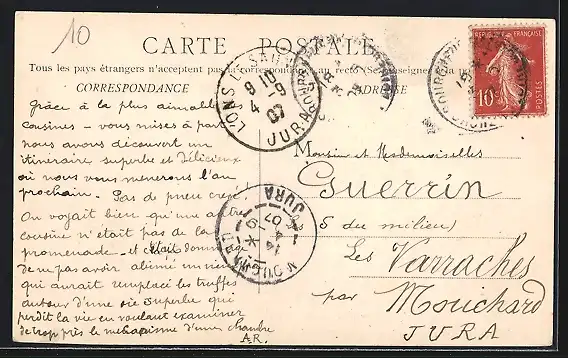 10
CARTE POSTALE
Tous les pays étrangers n'acceptent pas la correspondance au recto (Se renseigner à la
CORRESPONDANCE
ADRESSE
Grâce à la plus aimable des
cousines - vous mises à part
nous avons découvert un
itinéraire superbe et délicieux
où nous vous menerons l'an
prochain. Pas de pneu crevé.
On voyait bien qu'une autre
cousine n'était pas de la
promenade - et c'était dommage
de ne pas avoir abîmé un
qui aurait remplacé les truffes
autour d'une oie superbe qui
perdit la vie en voulant examiner
de trop près le mécanisme d'une chambre
A.R.
Monsieur et Mesdemoiselles
Guerrin
(du milieu)
Les Varraches
par Mouchard
JURA
LONS-LE-SAUNIER
9 10
4 -9
07
JURA
MOUCHARD
14
4 -9
07
JURA
REPUBLIQUE FRANÇAISE
10
POSTES